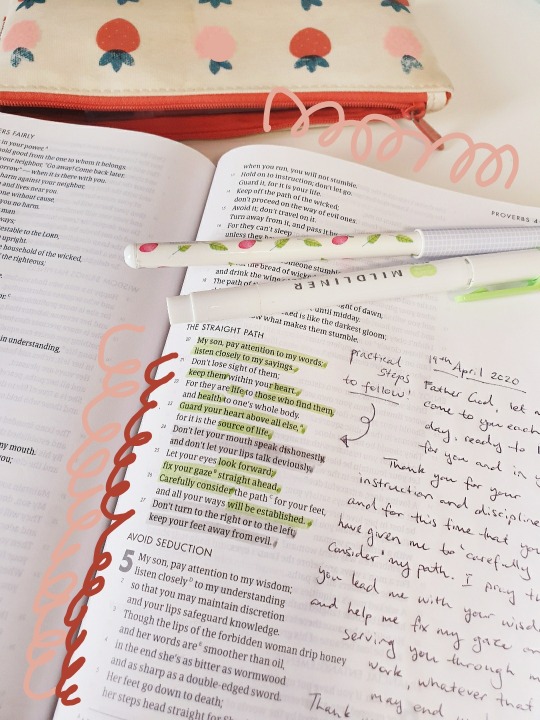 ERS FAIRLY
in your power.
hold good from the one to whom it belongs
your neighbor, "Go away! Come back later.
orrow" — when it is there with you.
harm against your neighbor,
and lives near you
one without cause,
you no harm.
man
ways;
estable to the LORD,
upright.
household of the wicked,
of the righteous;
in understanding,
my mouth.
you;
PROVERBS 4
when you run, you will not stumble.
Hold on to instruction; don't let go.
Guard it, for it is your life.
Keep off the path of the wicked;
don't proceed on the way of evil ones.
Avoid it; don't travel on it.
Turn away from it, and pass it
For they can't sleep
unless they
someone stumble.
the bread of
and drink the wine
The path of
light of dawn,
until midday.
is like the darkest gloom;
what makes them stumble.
MILDLINER
THE STRAIGHT PATH
20 My son, pay attention to my words;
listen closely to my sayings.
21 Don't lose sight of them;
keep them within your heart.
22 For they are life to those who find them,
and health to one's whole body.
23 Guard your heart above all else,
for it is the source of life.
24 Don't let your mouth speak dishonestly,
and don't let your lips talk deviously.
25 Let your eyes look forward;
fix your gaze straight ahead.
26 Carefully consider the path for your feet,
and all your ways will be established.
27 Don't turn to the right or to the left;
keep your feet away from evil.
AVOID SEDUCTION
5 My son, pay attention to my wisdom;
listen closely to my understanding
2 so that you may maintain discretion
and your lips safeguard knowledge.
3 Though the lips of the forbidden woman drip honey
and her words are smoother than oil,
4 in the end she's as bitter as wormwood
and as sharp as a double-edged sword.
5 Her feet go down to death;
her steps head straight for
practical
steps
to follow!
19th April 2020
Father God, let
come to you each
day, ready to
for you and in
Thank you for your
instruction and discipline
and for this time that you
have given me to 'carefully
consider' my path. I pray
you lead me with your
and help me fix my gaze on
serving you through
work, whatever that
may end
Thank